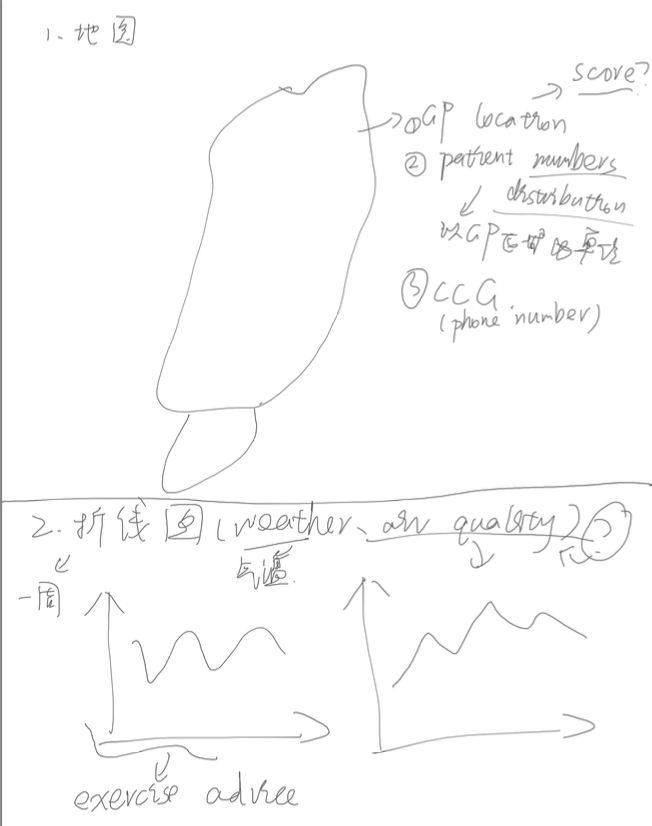 1. 地图
score?
①GP location
② patient numbers
distribution
以GP
③ CCG
(phone number)
2. 折线图 (weather、air quality) ?
气温
一周
exercise advice